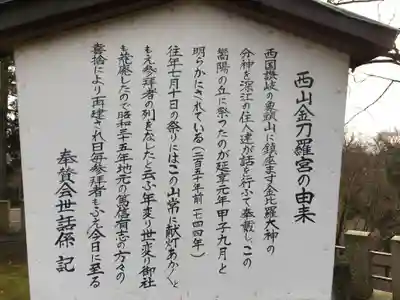 西山金刀羅宮の由来
西国讃岐の象頭山に鎮座ます金比羅大神の
分神を深江の住人達が話を行ふて奉戴しこの
嵩陽の丘に祭つたのが延享元年甲子九月と
明らかにされている(二百五十年前一七四四年)
往年七月十日の祭りにはこの山常に献灯あかあかと
もえ参拝者の列をなしたと云ふ年変り世変り御社
も荒廃したので昭和三十五年地元の篤信有志の方々の
喜捨により再建され日毎参拝者もふえ今日に至る
奉賛会世話係 記